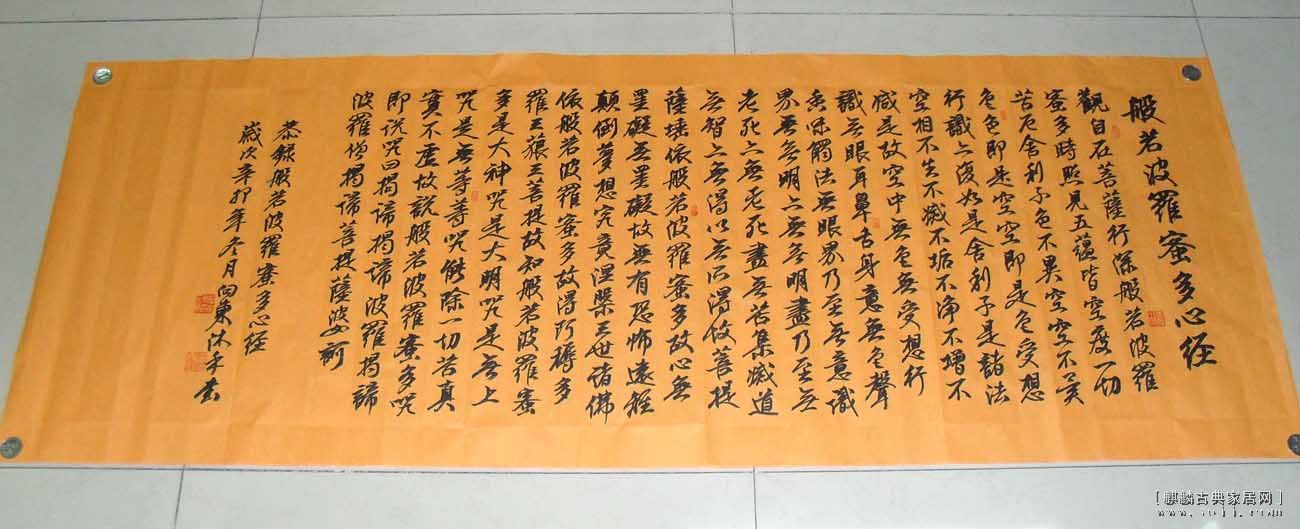 般若波羅蜜多心经
觀自在菩薩行深般若波羅
蜜多時照見五蕴皆空度一切
苦厄舍利子色不異空空不異
色色即是空空即是色受想
行識亦復如是舍利子是諸法
空相不生不滅不垢不浄不增不
减是故空中無色無受想行
識無眼耳鼻舌身意無色聲
香味觸法無眼界乃至無意識
界無無明亦無無明盡乃至無
老死亦無老死盡無苦集滅道
無智亦無得以無所得故菩提
薩埵依般若波羅蜜多故心無
罣礙無罣礙故無有恐怖遠離
顛倒夢想究竟涅槃三世诸佛
依般若波羅蜜多故得阿耨多
羅三藐三菩提故知般若波羅蜜
多是大神咒是大明咒是無上
咒是無等等咒能除一切苦真
實不虛故説般若波羅蜜多咒
即说咒曰揭谛揭谛波羅揭諦
波羅僧揭諦菩提薩婆訶
恭録般若波羅蜜多心经
歲次辛卯年冬月向東沐手書
[麒麟古典家居网]